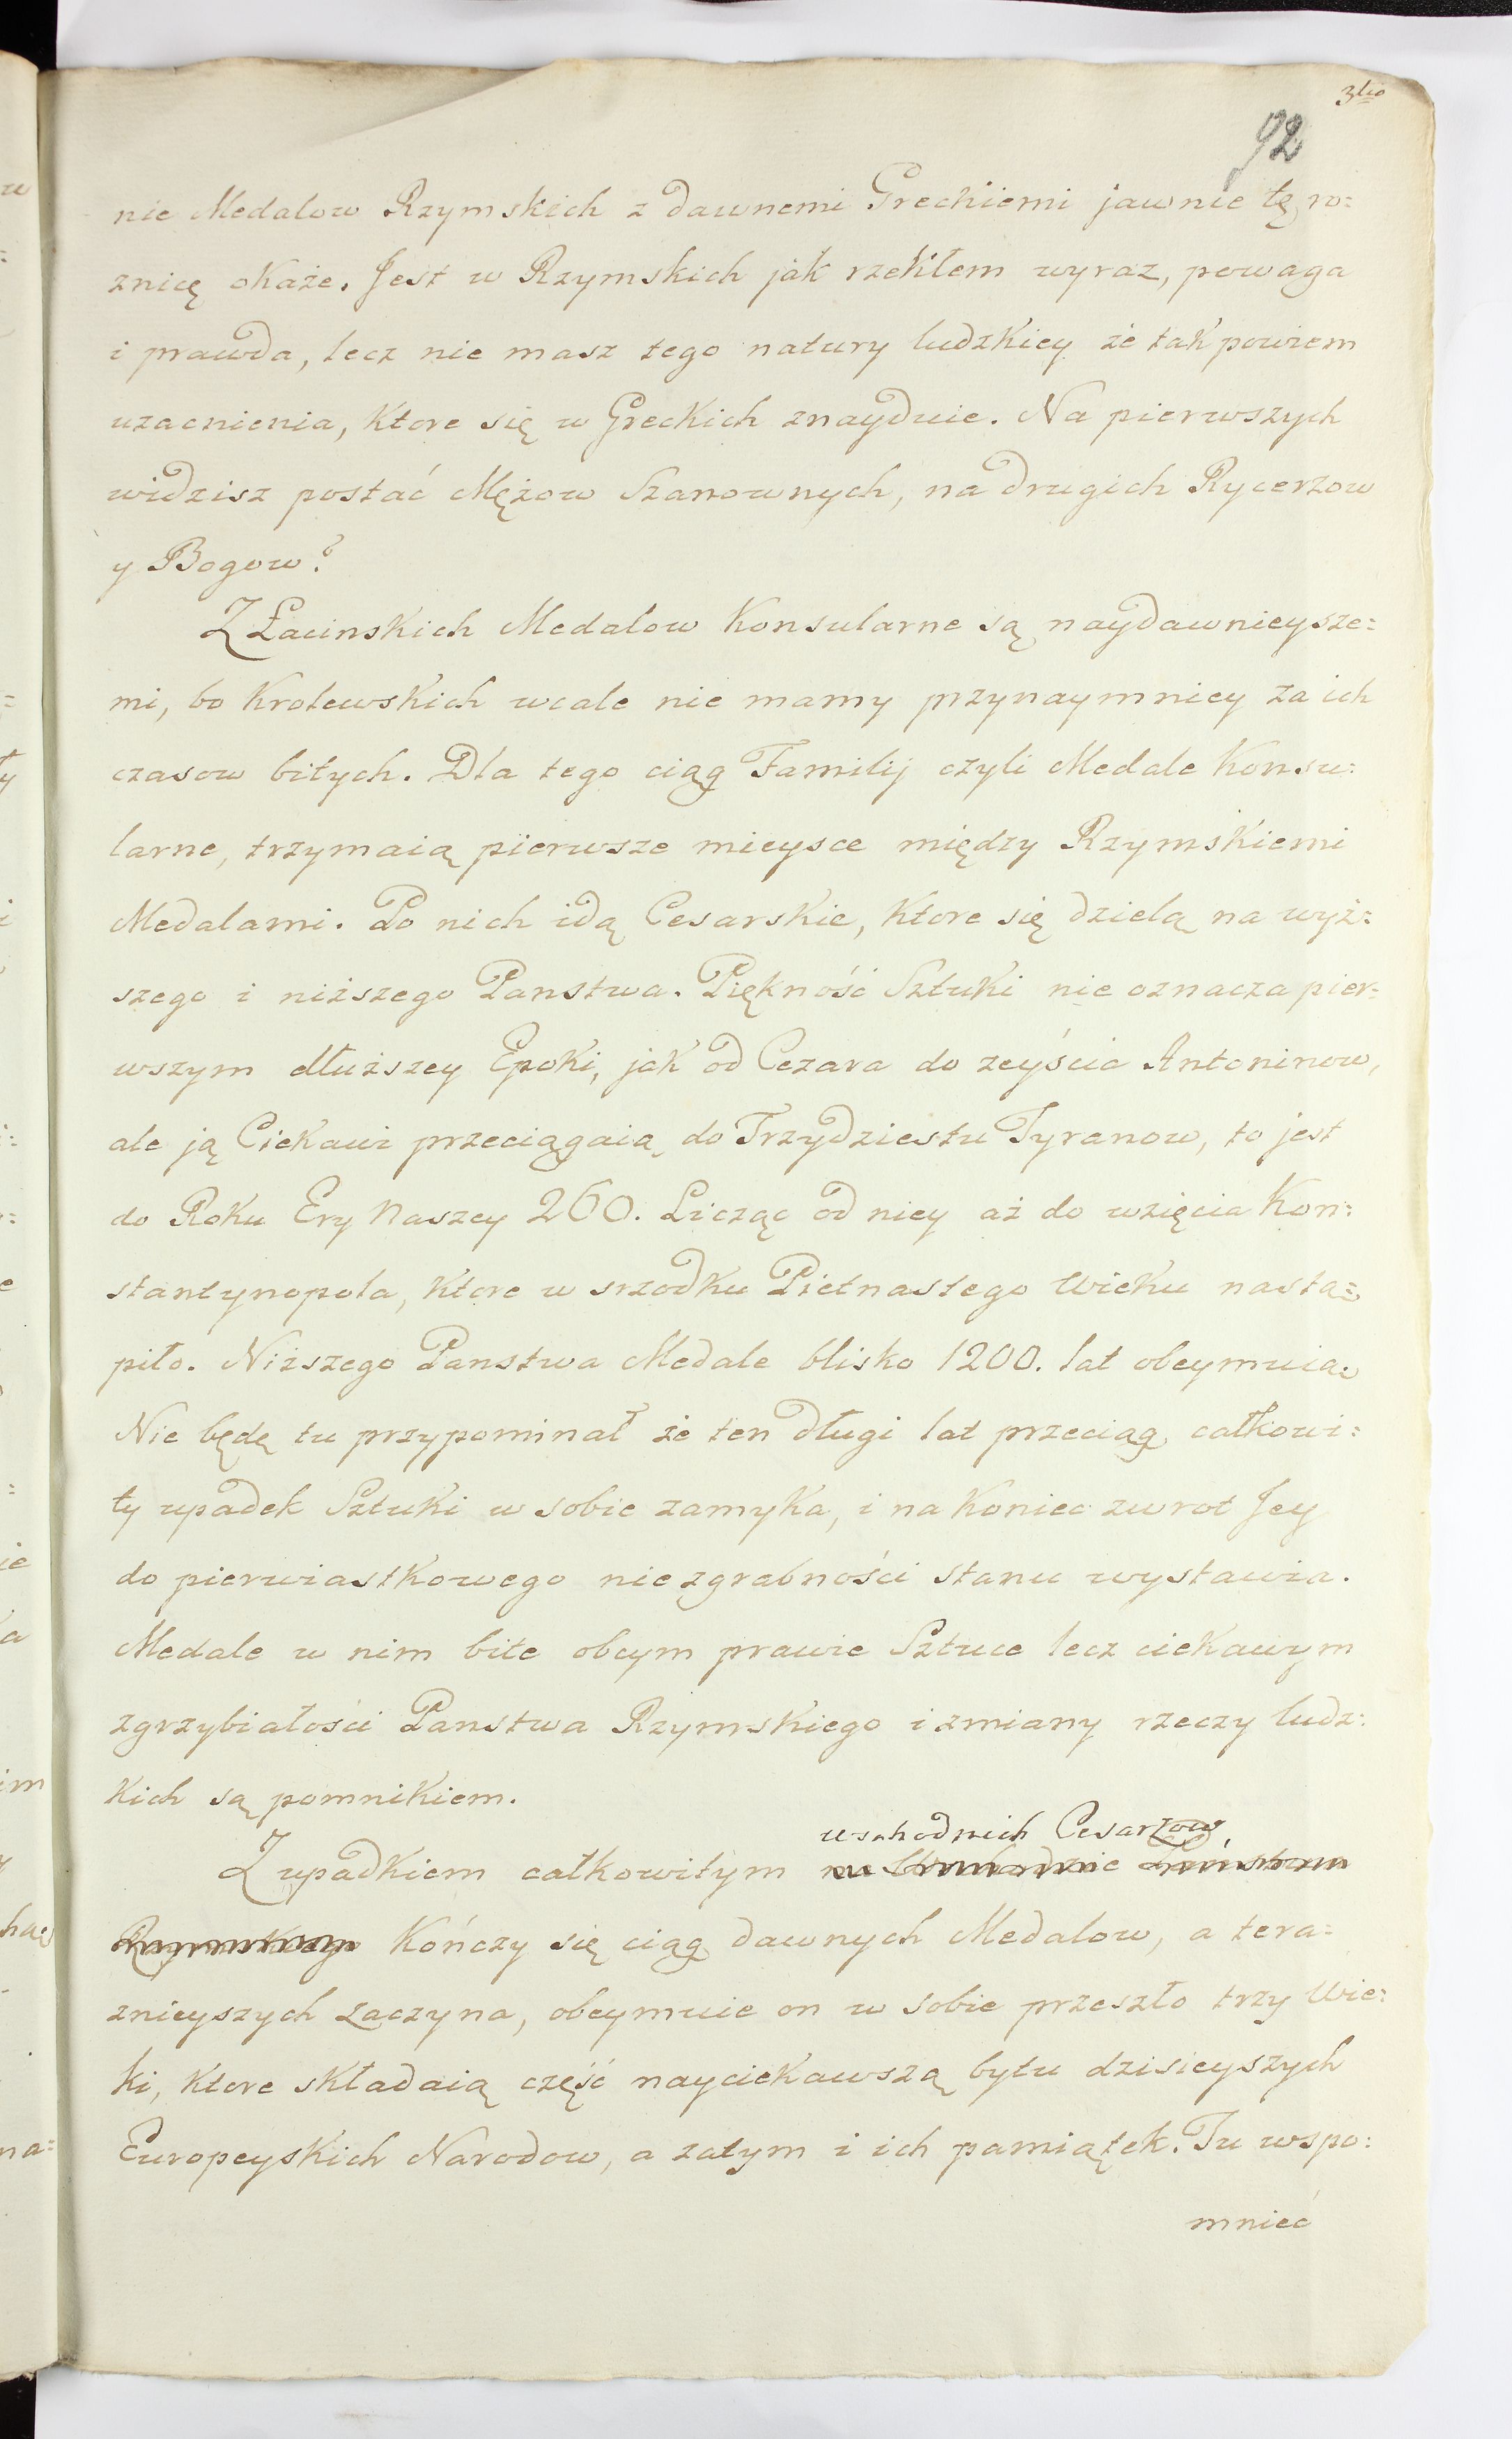 3tio
92
nie Medalow Rzymskich z dawnemi Greckiemi jawnie tę ro:
znicę okaże. Jest w Rzymskich jak rzekłem wyraz, powaga
i prawda, lecz nie masz tego natury ludzkiey że tak powiem
uzacnienia, ktore się w Greckich znayduie. Na pierwszych
widzisz postać Mężow Szanownych, na drugich Rycerzow
y Bogow?
Z Łacinskich Medalow Konsularne są naydawnieysze:
mi, bo Krolewskich wcale nie mamy przynaymniey za ich
czasow bitych. Dla tego ciąg Familij czyli Medale Konsu:
larne, trzymaią pierwsze mieysce między Rzymskiemi
Medalami. Po nich idą Cesarskie, ktore się dzielą na wyż:
szego i niższego Panstwa. Piękność Sztuki nie oznacza pier:
wszym dłuższey Epoki, jak od Cezara do zeyścia Antoninow,
ale ją Ciekawi przeciągaią do Trzydziestu Tyranow, to jest
do Roku Ery Naszey 260. Licząc od niey aż do wzięcia Kon:
stantynopola, ktore w srzodku Pietnastego Wieku nastą=
piło. Niższego Panstwa Medale blisko 1200. lat obeymuią.
Nie będę tu przypominał że ten długi lat przeciąg całkowi:
ty upadek Sztuki w sobie zamyka, i na koniec zwrot Jey
do pierwiastkowego niezgrabności stanu wystawia.
Medale w nim bite obcym prawie Sztuce lecz ciekawym
zgrzybiałości Panstwa Rzymskiego i zmiany rzeczy ludz:
kich są pomnikiem.
wschodnich Cesarzow,
Z upadkiem całkowitym
Kończy się ciąg dawnych Medalow, a tera:
znieyszych zaczyna, obeymuie on w sobie przeszło trzy Wie:
ki, ktore składaią część nayciekawszą bytu dzisieyszych
Europeyskich Narodow, a zatym i ich pamiątek. Tu wspo:
mnieć